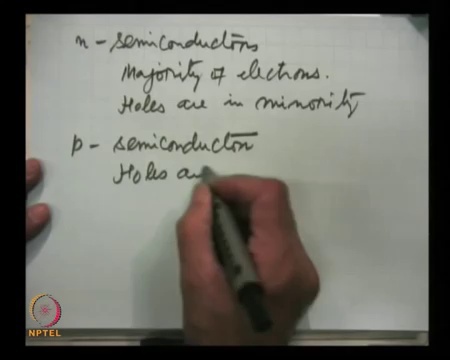 n - semiconductors
Majority of electrons.
Holes are in minority
p - semiconductor
Holes a
NPTEL